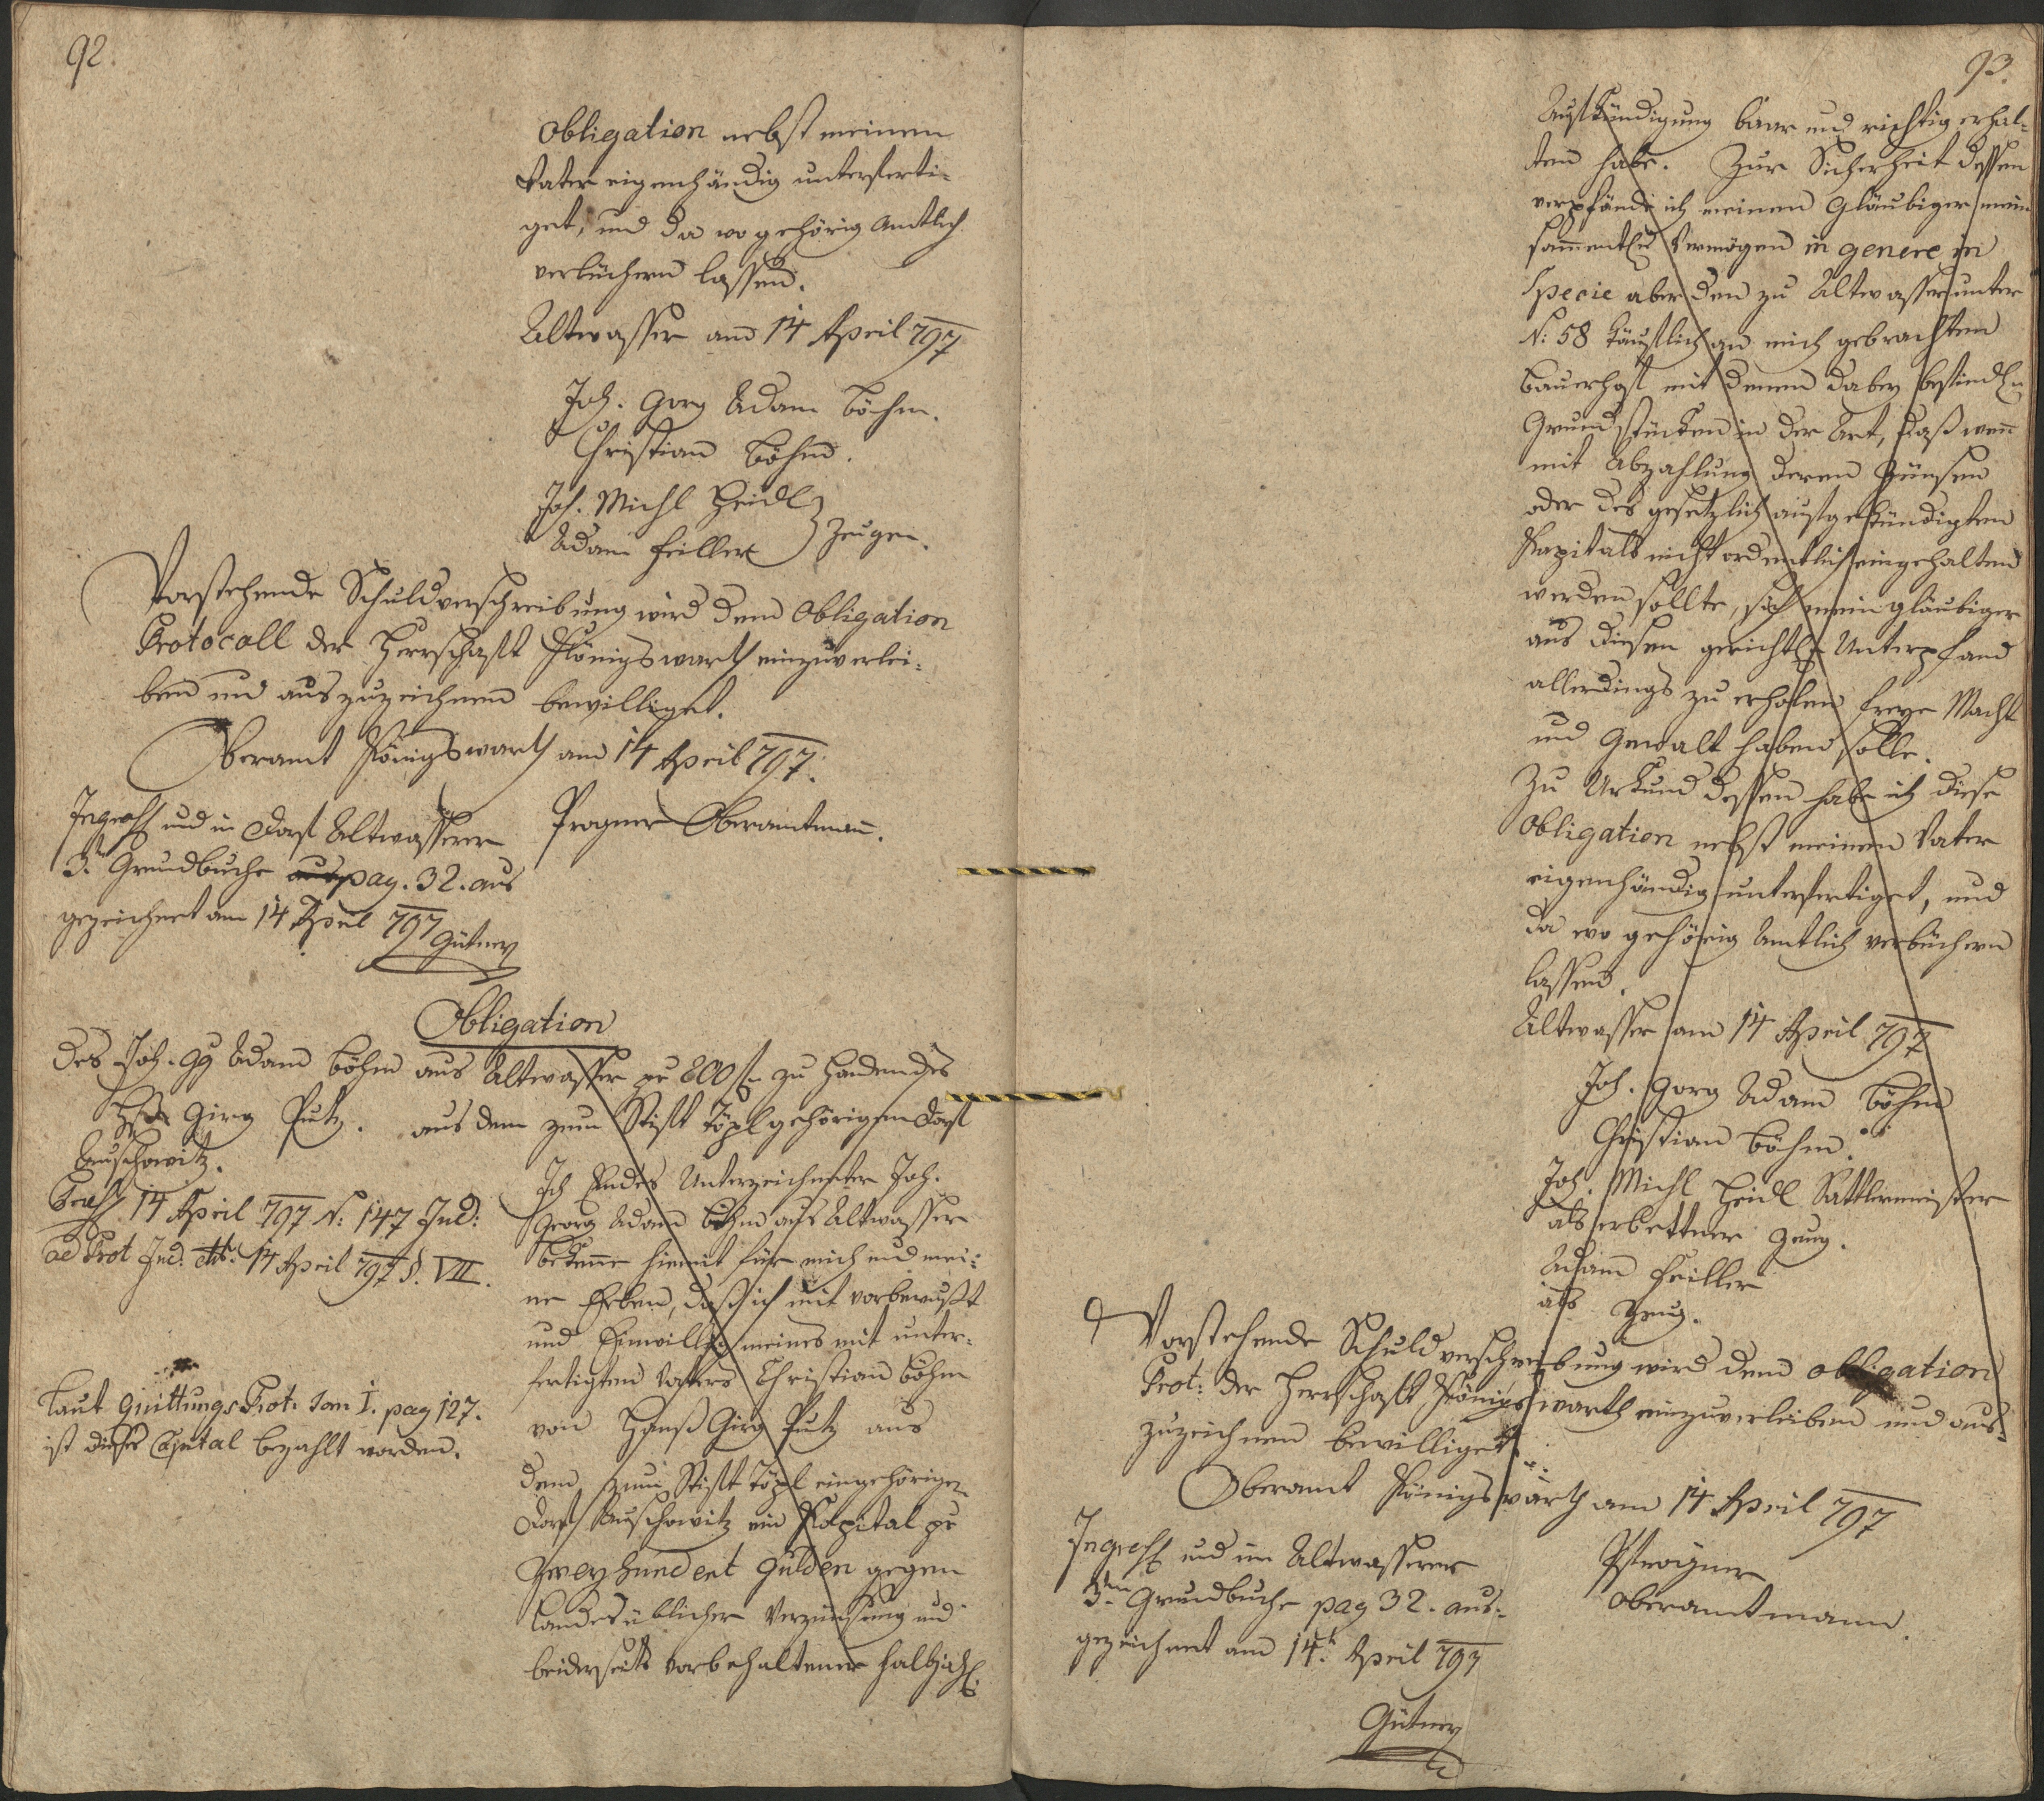 92.
Obligation nebst meinem
Vater eigenhändig unterferti-
get, und da wo gehörig Amtlich
verbüchern lassen.
Altwasser am 14 April 797
Joh. Gorg Adam Böhm.
Christian Böhm.
Joh. Michl Heidl
Adam Feiller } Zeugen.
Vorstehende Schuldverschreibung wird dem Obligation
Protocoll der Herrschaft Königswarth einzuverlei-
ben und auszuzeichnen bewilliget.
Oberamt Königswarth am 14 April 797.
Oberamtmañ.
Ingross und in Dorf Altwasserer
3. Grundbuche pag. 32. aus
gezeichnet am 14 April 797
Gütner
Obligation
des Joh. Gg Adam Böhm aus Altwasser pr 200 f zu Handen des
Girg Putz. aus dem zum Stift Töpl gehörigen Dorf
Auschowitz.
Praes 14 April 797 N: 147 Jud:
ad Prot Jud. dtto. 14 April 797 §. VII.
Laut Quittungs Prot. Tom I. pag 127.
ist dieses Capital bezahlt worden.
Ich Endes Unterzeichneter Joh.
Georg Adam Böhm aus Altwasser
bekenne hiemit für mich und mei-
ne Erben, daß ich mit vorbewußt
und Einwillg. meines mit unter-
fertigten Vaters Christian Böhm
von Hanß Girg Putz aus
dem zum Stift Töpl eingehörigen
Dorf Auschowitz ein Kapital pr
Zweyhundert Gulden gegen
Landesüblicher Verzinsung und
beiderseits vorbehaltener halbjäh.
93.
Aufkündigung baar und richtig erhal-
ten habe. Zur Sicherheit dessen
verpfände ich meinem Gläubiger mein
sam̄entl. Vermögen in genere in
Specie aber den zu Altwasser unter
N: 58 käuflich an mich gebrachten
Bauerhof mit denen dabey befindln
Grundstücken in der Art, daß wenn
mit Abzahlung deren Zünsen
oder des gesetzlich aufgekündigten
Kapitals nicht ordentlich eingehalten
werden sollte, sich mein Gläubiger
aus diesem gerichtln Unterpfand
allerdings zu erholen freye Macht
und Gewalt haben solle.
Zu Urkund dessen habe ich diese
Obligation nebst meinem Vater
eigenhändig unterfertiget, und
da wo gehörig Amtlich verbüchern
lassen.
Altwasser am 14 April 797
Joh. Gorg Adam Böhm
Christian Böhm.
Joh. Michl Heidl Sattlermeister
als erbettner Zeug.
Adam Feiller
als Zeug.
Vorstehende Schuldverschreibung wird dem obligation
Prot: der Herrschaft Königswarth einzuverleiben und aus-
zuzeichnen bewilliget.
Oberamt Königswarth am 14 April 797
Oberamtmann.
Ingross und im Altwasserer
3ten Grundbuche pag 32. aus-
gezeichnet am 14t. April 797
Gütner